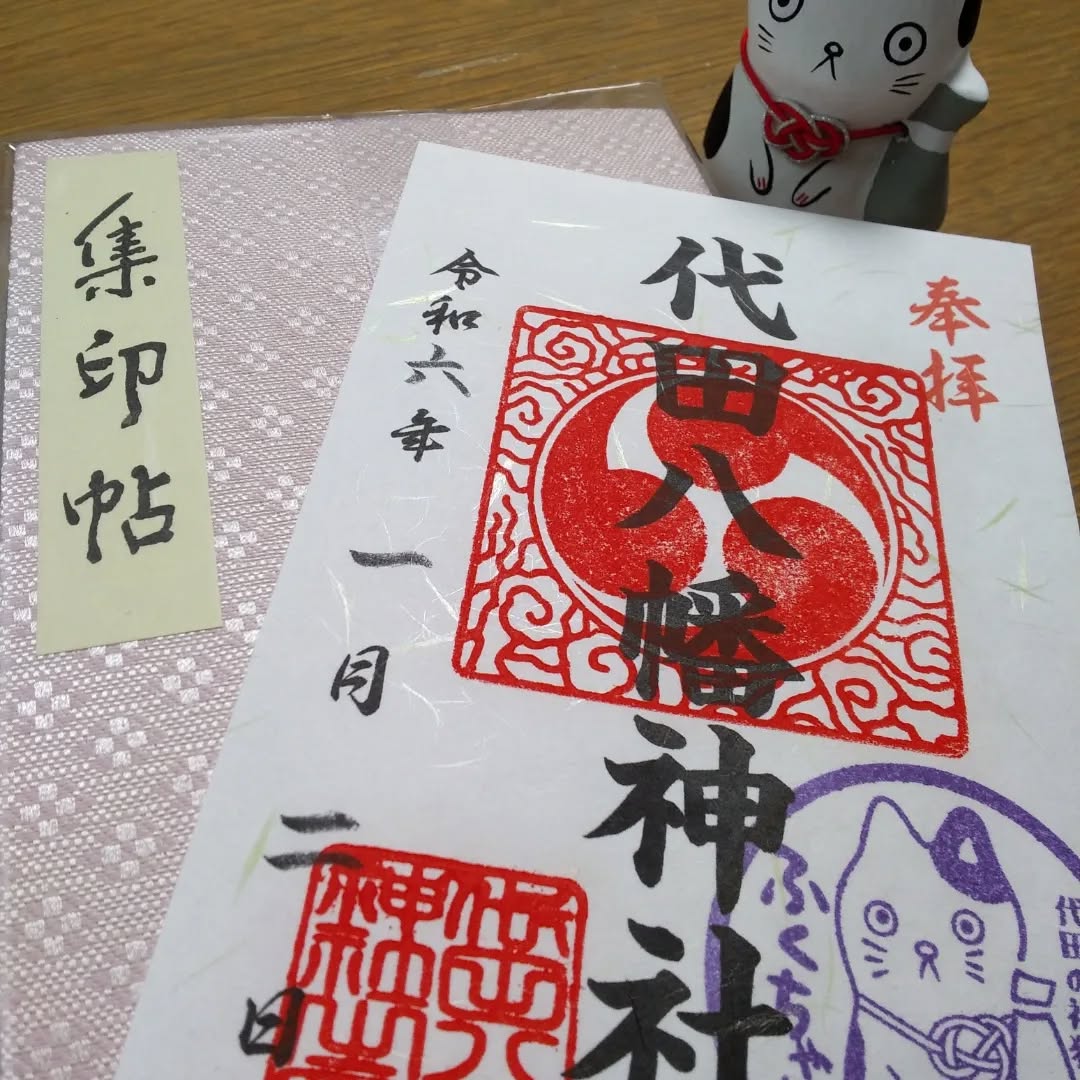 集印帖
奉拝
代田八幡神社
令和六年一月二日
ふくちゃ
代田の神猫